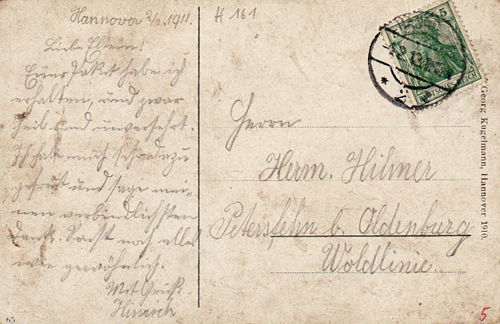 Hannover 2/2. 1911.
Liebe Eltern!
Euer Paket habe ich
erhalten, und zwar
heil und unversehrt.
Ich habe mich sehr dazu
gefreut und sage mei-
nen verbindlichsten
Dank. Sonst noch alles
wie gewöhnlich.
Mit Gruß
Hinrich
H 161
Herrn
Herm. Hilmer
Petersfehn b. Oldenburg
Woldlinie.
Georg Kugelmann, Hannover 1910.
63
5